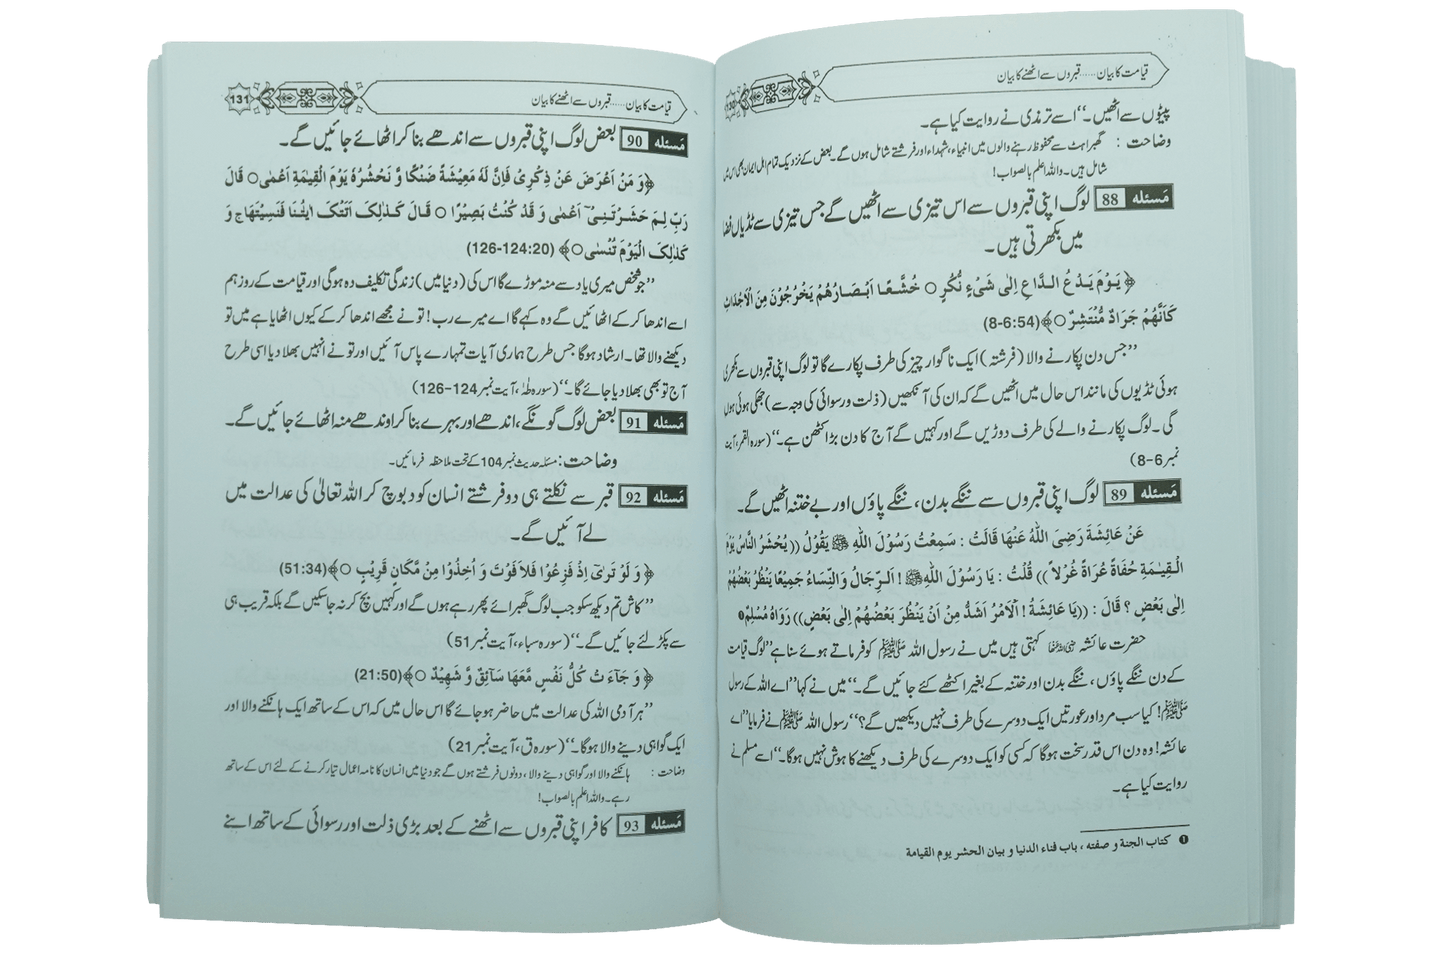 قیامت کا بیان......قبروں سے اٹھنے کا بیان
130
پیٹوں سے اٹھیں۔‘‘ اسے ترمذی نے روایت کیا ہے۔
وضاحت : گھبراہٹ سے محفوظ رہنے والوں میں انبیاء، شہداء اور فرشتے شامل ہوں گے۔ بعض کے نزدیک تمام اہل ایمان بھی اس میں
شامل ہیں۔ واللہ اعلم بالصواب!
مسئلہ 88 لوگ اپنی قبروں سے اس تیزی سے اٹھیں گے جس تیزی سے ٹڈیاں فضا
میں بکھرتی ہیں۔
﴿ يَوْمَ يَدْعُ الدَّاعِ اِلٰى شَىْءٍ نُّكُرٍ ○ خُشَّعًا اَبْصَارُهُمْ يَخْرُجُوْنَ مِنَ الْاَجْدَاثِ
كَاَنَّهُمْ جَرَادٌ مُّنْتَشِرٌ ○﴾(8-6:54)
’’جس دن پکارنے والا (فرشتہ) ایک ناگوار چیز کی طرف پکارے گا تو لوگ اپنی قبروں سے بکھری
ہوئی ٹڈیوں کی مانند اس حال میں اٹھیں گے کہ ان کی آنکھیں (ذلت و رسوائی کی وجہ سے) جھکی ہوئی ہوں
گی۔ لوگ پکارنے والے کی طرف دوڑیں گے اور کہیں گے آج کا دن بڑا کٹھن ہے۔‘‘ (سورہ القمر، آیت
نمبر 6-8)
مسئلہ 89 لوگ اپنی قبروں سے ننگے بدن، ننگے پاؤں اور بے ختنہ اٹھیں گے۔
عَنْ عَائِشَةَ رَضِيَ اللّٰهُ عَنْهَا قَالَتْ : سَمِعْتُ رَسُوْلَ اللّٰهِ ﷺ يَقُوْلُ ((يُحْشَرُ النَّاسُ يَوْمَ
الْقِيٰمَةِ حُفَاةً عُرَاةً غُرْلاً )) قُلْتُ : يَا رَسُوْلَ اللّٰهِ ﷺ ! اَلرِّجَالُ وَالنِّسَاءُ جَمِيْعًا يَنْظُرُ بَعْضُهُمْ
اِلٰى بَعْضٍ ؟ قَالَ : ((يَا عَائِشَةُ ! اَلْاَمْرُ اَشَدُّ مِنْ اَنْ يَنْظُرَ بَعْضُهُمْ اِلٰى بَعْضٍ)) رَوَاهُ مُسْلِمٌ❶
حضرت عائشہ رضی اللہ عنہا کہتی ہیں میں نے رسول اللہ ﷺ کو فرماتے ہوئے سنا ہے ’’لوگ قیامت
کے دن ننگے پاؤں، ننگے بدن اور ختنہ کے بغیر اکٹھے کئے جائیں گے۔‘‘ میں نے کہا ’’اے اللہ کے رسول
ﷺ! کیا سب مرد اور عورتیں ایک دوسرے کی طرف نہیں دیکھیں گے؟‘‘ رسول اللہ ﷺ نے فرمایا ’’اے
عائشہ! وہ دن اس قدر سخت ہوگا کہ کسی کو ایک دوسرے کی طرف دیکھنے کا ہوش نہیں ہوگا۔‘‘ اسے مسلم نے
روایت کیا ہے۔
❶ كتاب الجنة و صفته ، باب فناء الدنيا و بيان الحشر يوم القيامة
قیامت کا بیان......قبروں سے اٹھنے کا بیان
131
مسئلہ 90 بعض لوگ اپنی قبروں سے اندھے بنا کر اٹھائے جائیں گے۔
﴿وَ مَنْ اَعْرَضَ عَنْ ذِكْرِىْ فَاِنَّ لَهٗ مَعِيْشَةً ضَنْكًا وَّ نَحْشُرُهٗ يَوْمَ الْقِيٰمَةِ اَعْمٰى○ قَالَ
رَبِّ لِمَ حَشَرْتَنِىْٓ اَعْمٰى وَ قَدْ كُنْتُ بَصِيْرًا ○ قَالَ كَذٰلِكَ اَتَتْكَ اٰيٰتُنَا فَنَسِيْتَهَا ج وَ
كَذٰلِكَ الْيَوْمَ تُنْسٰى○﴾ (126-124:20)
’’جو شخص میری یاد سے منہ موڑے گا اس کی (دنیا میں) زندگی تکلیف دہ ہوگی اور قیامت کے روز ہم
اسے اندھا کر کے اٹھائیں گے وہ کہے گا اے میرے رب! تو نے مجھے اندھا کر کے کیوں اٹھایا ہے میں تو
دیکھنے والا تھا۔ ارشاد ہوگا جس طرح ہماری آیات تمہارے پاس آئیں اور تو نے انہیں بھلا دیا اسی طرح
آج تو بھی بھلا دیا جائے گا۔‘‘ (سورہ طٰہٰ، آیت نمبر 124-126)
مسئلہ 91 بعض لوگ گونگے، اندھے اور بہرے بنا کر اوندھے منہ اٹھائے جائیں گے۔
وضاحت : مسئلہ حدیث نمبر 104 کے تحت ملاحظہ فرمائیں۔
مسئلہ 92 قبر سے نکلتے ہی دو فرشتے انسان کو دبوچ کر اللہ تعالیٰ کی عدالت میں
لے آئیں گے۔
﴿ وَ لَوْ تَرٰىٓ اِذْ فَزِعُوْا فَلَا فَوْتَ وَ اُخِذُوْا مِنْ مَّكَانٍ قَرِيْبٍ ○﴾(51:34)
’’کاش تم دیکھ سکو جب لوگ گھبرائے پھر رہے ہوں گے اور کہیں بچ کر نہ جا سکیں گے بلکہ قریب ہی
سے پکڑ لئے جائیں گے۔‘‘ (سورہ سباء، آیت نمبر 51)
﴿ وَ جَآءَ تْ كُلُّ نَفْسٍ مَّعَهَا سَآئِقٌ وَّ شَهِيْدٌ ○﴾(21:50)
’’ہر آدمی اللہ کی عدالت میں حاضر ہو جائے گا اس حال میں کہ اس کے ساتھ ایک ہانکنے والا اور
ایک گواہی دینے والا ہوگا۔‘‘ (سورہ ق، آیت نمبر 21)
وضاحت : ہانکنے والا اور گواہی دینے والا، دونوں فرشتے ہوں گے جو دنیا میں انسان کا نامہ اعمال تیار کرنے کے لئے اس کے ساتھ
رہے۔ واللہ اعلم بالصواب!
مسئلہ 93 کافر اپنی قبروں سے اٹھنے کے بعد بڑی ذلت اور رسوائی کے ساتھ اپنے